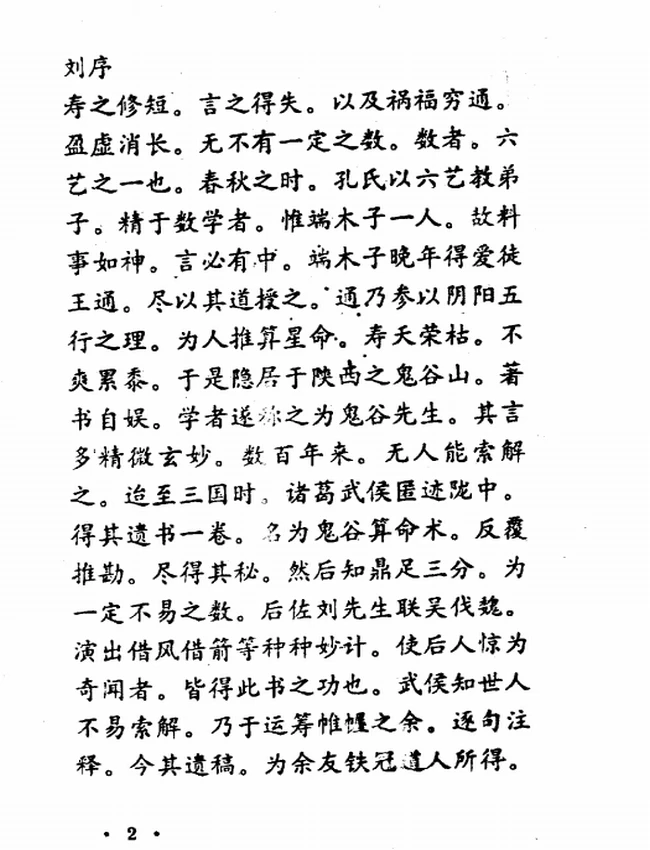 刘序
寿之修短。言之得失。以及祸福穷通。
盈虚消长。无不有一定之数。数者。六
艺之一也。春秋之时。孔氏以六艺教弟
子。精于数学者。惟端木子一人。故料
事如神。言必有中。端木子晚年得爱徒
王通。尽以其道授之。通乃参以阴阳五
行之理。为人推算星命。寿夭荣枯。不
爽累黍。于是隐居于陕西之鬼谷山。著
书自娱。学者遂称之为鬼谷先生。其言
多精微玄妙。数百年来。无人能索解
之。迨至三国时。诸葛武侯匿迹陇中。
得其遗书一卷。名为鬼谷算命术。反覆
推勘。尽得其秘。然后知鼎足三分。为
一定不易之数。后佐刘先生联吴伐魏。
演出借风借箭等种种妙计。使后人惊为
奇闻者。皆得此书之功也。武侯知世人
不易索解。乃于运筹帷幄之余。逐句注
释。今其遗稿。为余友铁冠道人所得。
• 2 •